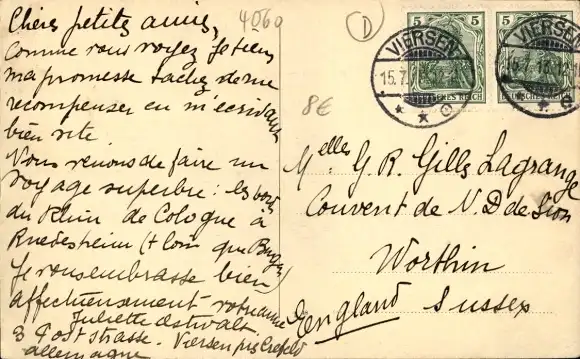 Chères petites amies,
Comme vous voyez je tiens
ma promesse tachez de me
recompenser en m'écrivant
bien vite
Vous venons de faire un
voyage superbe : les bords
du Rhin de Cologne à
Ruedesheim (+ loin que Bingen)
Je vous embrasse bien
affectueusement votre amie
Juliette
3 Poststrasse. Viersen près Crefeld
allemagne
4060
D
8€
5 5
VIERSEN
15.7.
DEUTSCHES REICH
Melles G. R. Gills Lagrange
Couvent de N. D de Sion
Worthin
England Sussex